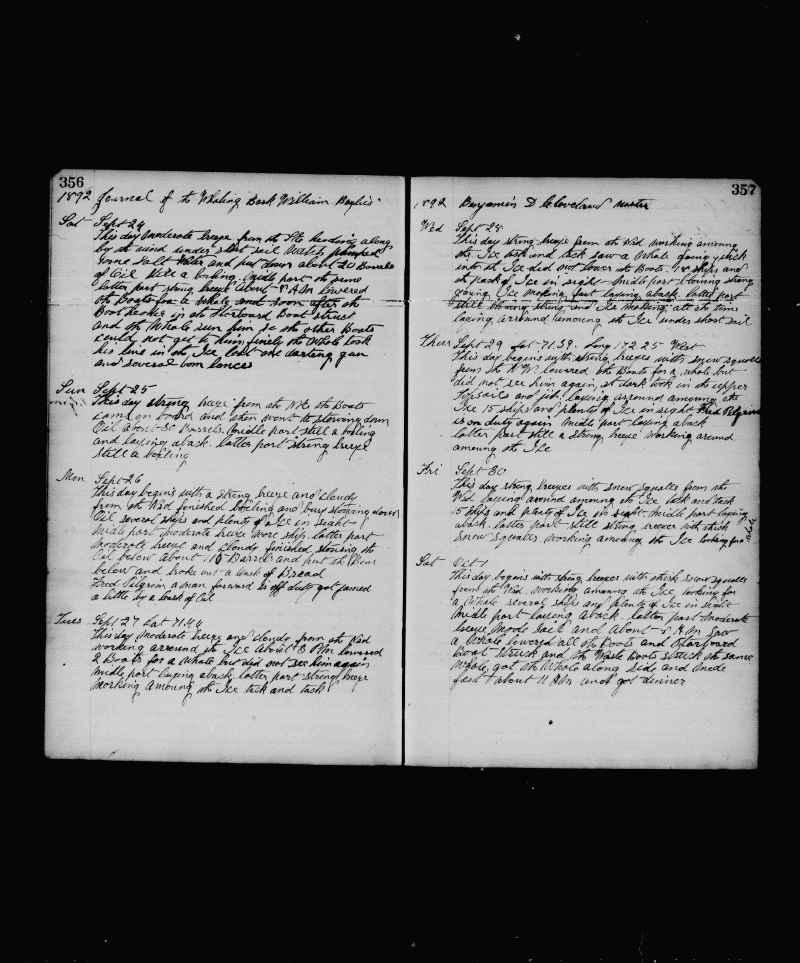 356
1892 Journal of the Whaling Bark William Baylies
Sat Sept 24
This day moderate breeze from the Nd heading along
by the wind under short sail Watch pumped
some Salt Water and put down about 20 Barrels
of Oil still a boiling Middle part the same
latter part strong breeze about 8 AM lowered
the Boats for a whale and soon after the
Boatheader in the Starboard Boat struck
and the Whale run from so the other Boats
could not get to him finely the Whole took
his line in the Ice lost one darting gun
and several bom lances
Sun Sept 25
This day strong breeze from the Nd the Boats
came on board and then went to stowing down
Oil about 80 Barrels. Middle part still a boiling
and laying aback. latter part strong breeze
still a boiling
Mon Sept 26
This day begins with a strong breeze and cloudy
from the Nd finished boiling and busy stowing down
Oil several ships and plenty of Ice in sight
Midle part moderate breeze wore ship latter part
moderate breeze and cloudy finished stowing the
Oil below about 115 Barrels and put the Bone
below and broke out a cask of Bread
Fred Pilgrim a man forward is off duty got jamed
a little by a cask of Oil
Tues Sept 27 Lat 71.44
This day moderate breeze and cloudy from the Nd
working arround the Ice about 3 PM lowered
2 Boats for a whale but did not see him again
Middle part laying aback latter part strong breeze
working amoung the Ice tack and tack
357
1892 Benjamin D Cleveland Master
Wed Sept 28
This day strong breeze from the Nd working amoung
the Ice tack and tack saw a Whale going quick
into the Ice did not lower the Boats. 18 ships and
the pack of Ice in sight Middle part blowing strong
going. Ice making fast laying aback latter part
still blowing strong and Ice making all the time
laying arround amoung the Ice under short sail
Thur Sept 29 Lat 71.39. Long 172.25 West
This day begins with strong breezes with snow squalls
from the NW. lowered the Boats for a whale but
did not see him again, at dark took in the upper
Topsails and jib. laying arround amoung the
Ice 15 ships and plenty of Ice in sight Fred Pilgrim
is on duty again Midle part laying aback
latter part still a strong breeze working around
amoung the Ice
Fri Sept 30
This day strong breezes with snow squalls from the
Nd laying around amoung the Ice tack and tack
5 ships and plenty of Ice in sight Midle part laying
aback latter part still strong breezes with thick
snow squalls working amoung the Ice looking for a
whale
Sat Oct 1
This day begins with strong breezes with thick snow squalls
from the Nd. working amoung the Ice looking for
a Whale several ships and plenty of Ice in sight
Middle part laying aback. latter part moderate
breeze Made sail and about 8 AM saw
a Whale lowered all the Boats and Starboard
Boat struck and the Waist Boats struck the same
Whale, got the Whale along side and made
fast & about 11 AM and got dinner